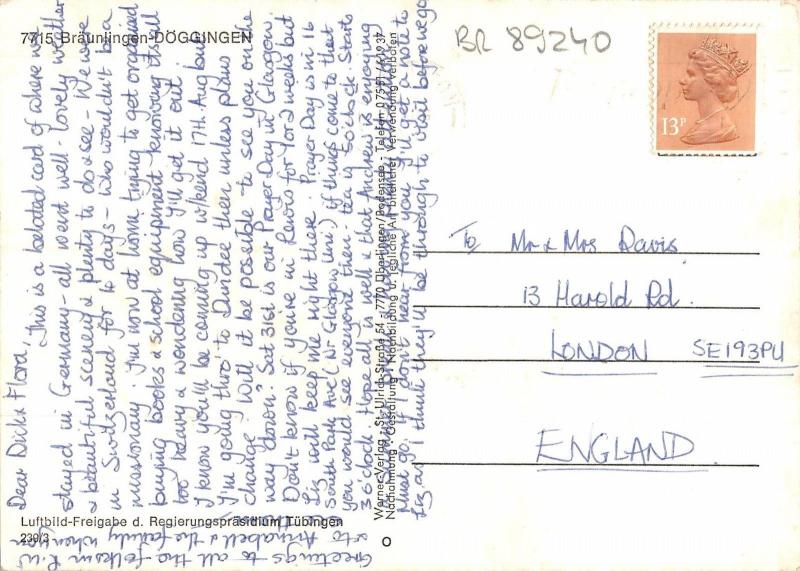 7715 Bräunlingen-DÖGGINGEN
BR 89240
13P
Dear Dick & Flora,
This is a belated card of where we
stayed in Germany - all went well - lovely weather
& beautiful scenery & plenty to do & see - We were
in Switzerland for 4 days - who wouldn't be a
missionary! I'm now at home trying to get organised
buying books & school equipment knowing its all
too heavy & wondering how I'll get it out.
I know you'll be coming up w/kend 17th Aug but
I'm going thro' to Dundee then unless plans
change. Will it be possible to see you on the
way down? Sat 31st is our Prayer Day in Glasgow.
Don't know if you're in for 1 or 2 weeks but
Liz will keep me right there. Prayer Day is in 16
South Park Ave (Nr Glasgow Uni) if things come to that
you would see everyone then - tea is 5 o'clock. Starts
3 o'clock. Hope all is well & that Andrew is enjoying
Must go. If I don't see you I'll give a note to
Liz as I think they'll be through to visit before we go
Greetings to all the folks in
& to Annabell & the family when you
To Mr & Mrs Davis
13 Harold Rd.
LONDON SE193PU
ENGLAND
Werner-Verlag · St.-Ulrich-Straße 54 · 7770 Überlingen/Bodensee · Telefon 07551/
Nachahmung · Gestaltung · Nachbildung u. jegliche Art bildlicher Verwendung verboten
Luftbild-Freigabe d. Regierungspräsidium Tübingen
239/3